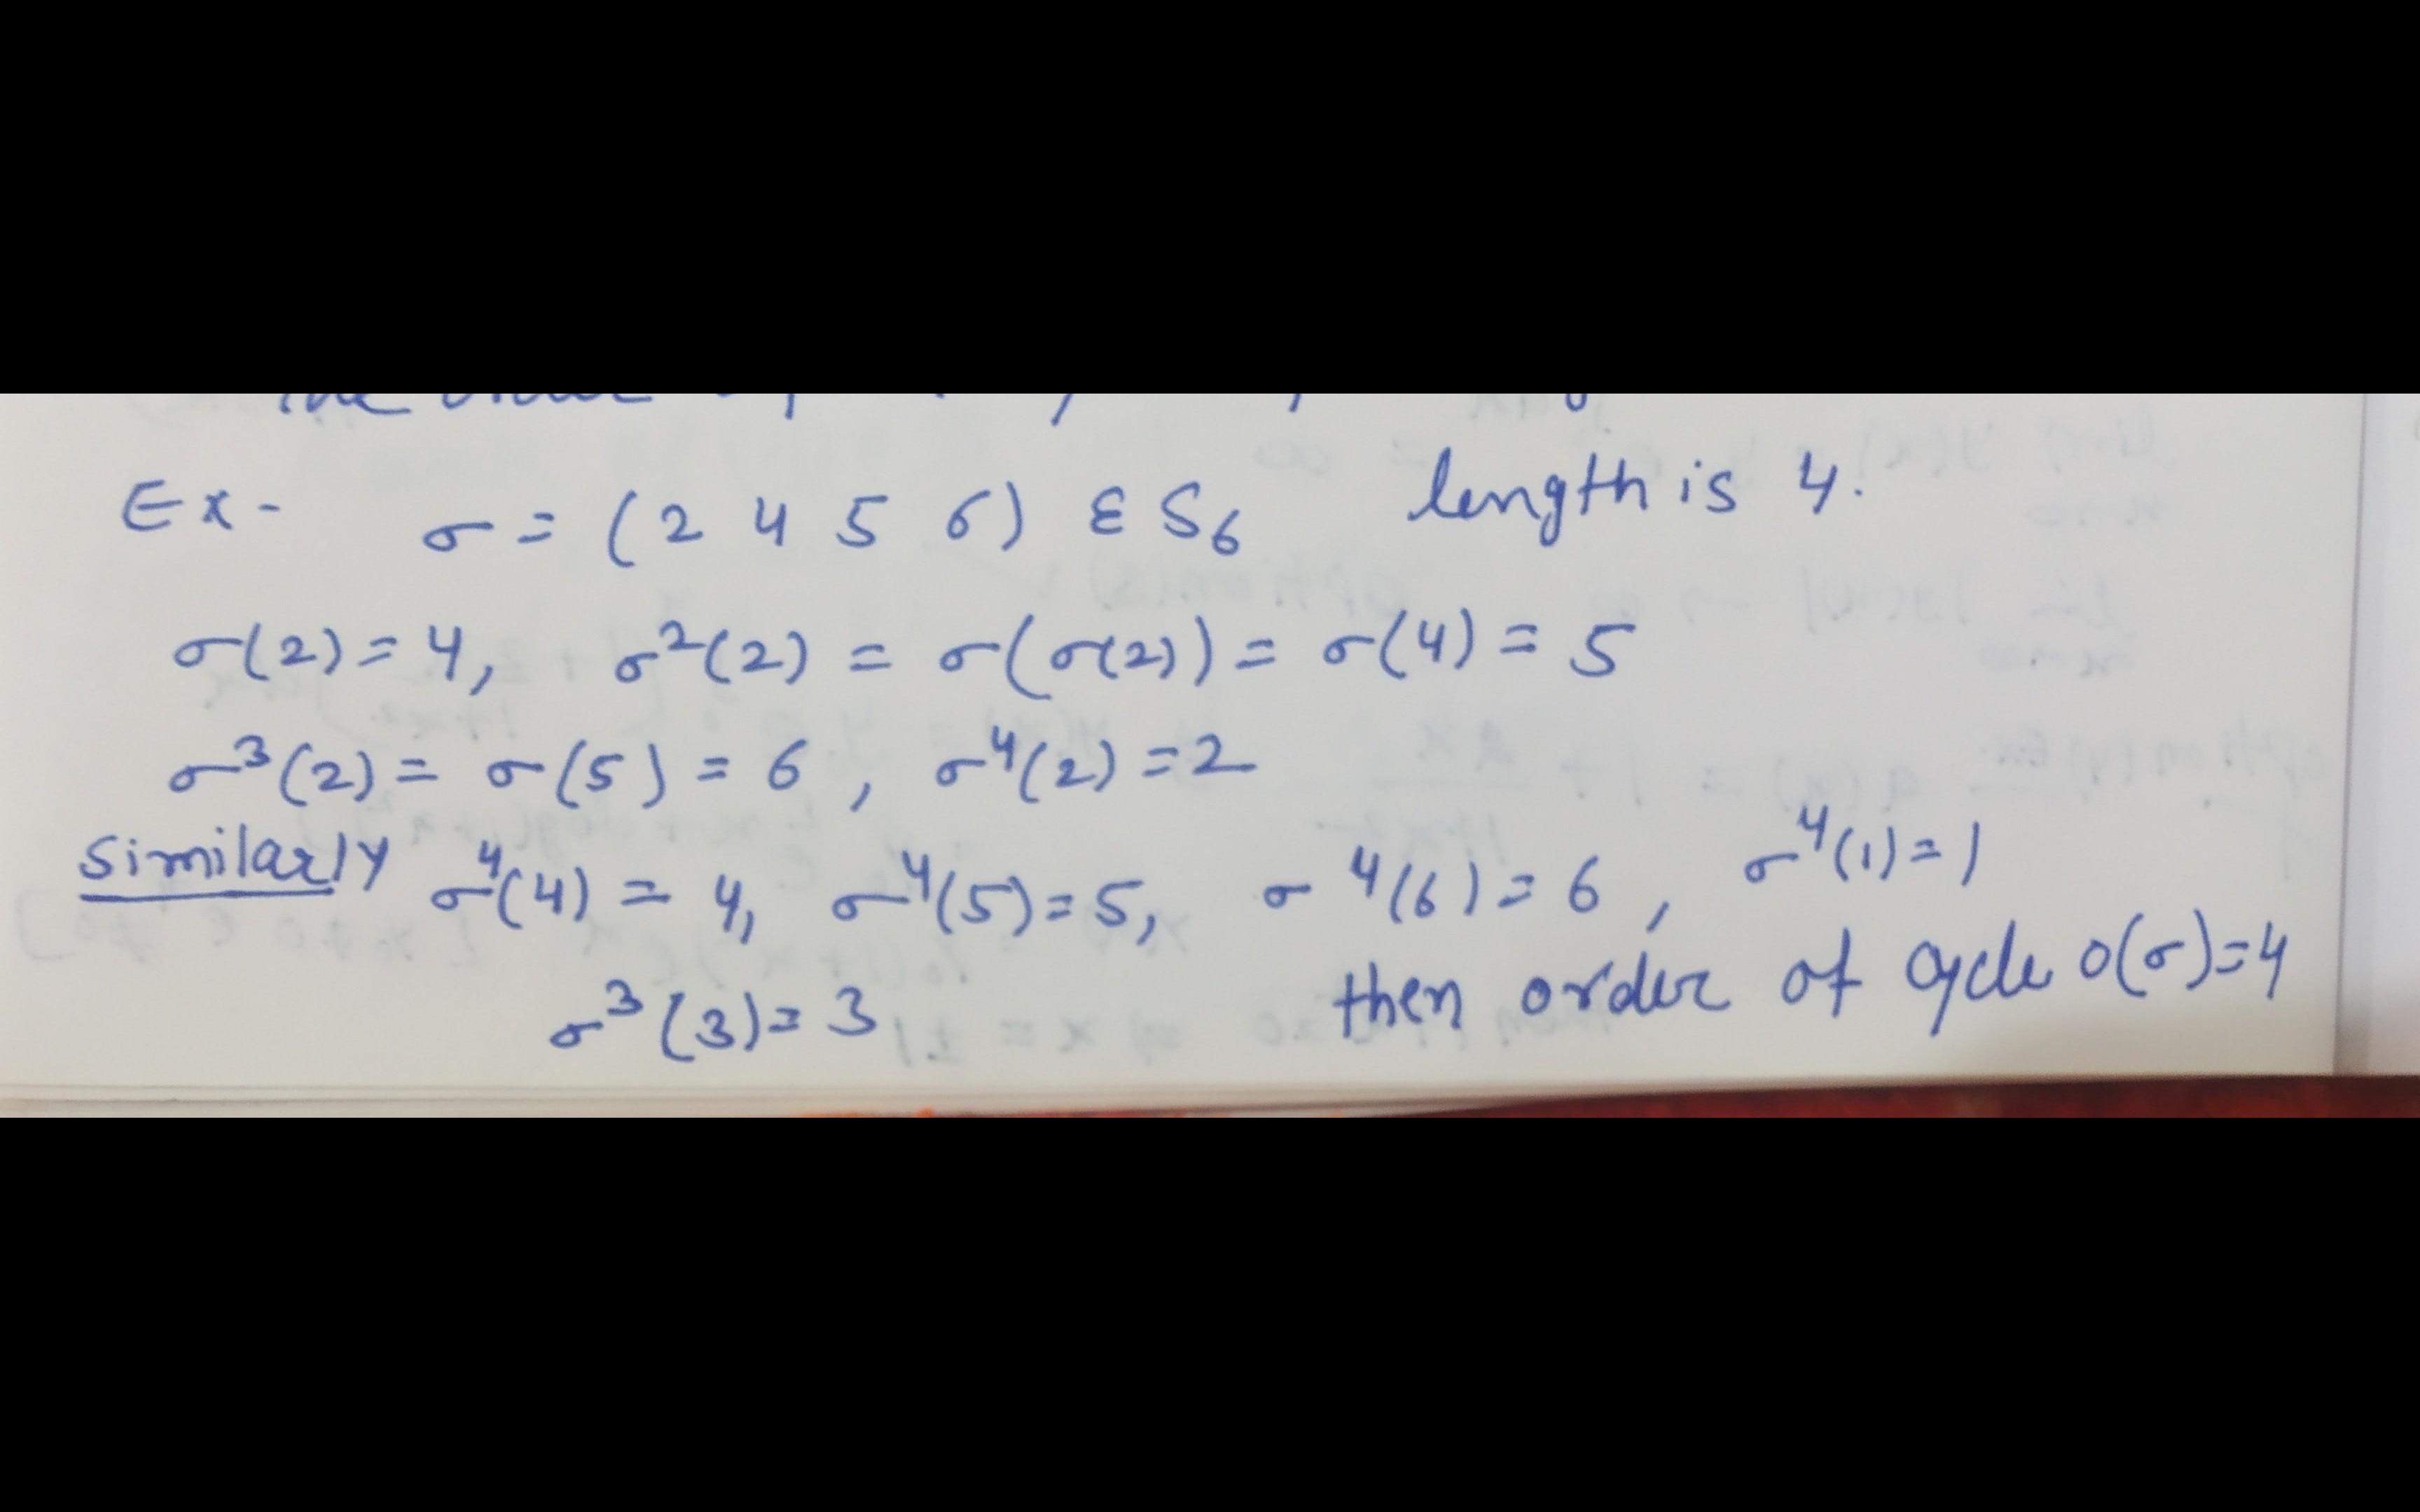 Ex - σ = (2 4 5 6) ε S₆ length is 4.
σ(2) = 4, σ²(2) = σ(σ(2)) = σ(4) = 5
σ³(2) = σ(5) = 6, σ⁴(2) = 2
Similarly σ⁴(4) = 4, σ⁴(5) = 5, σ⁴(6) = 6, σ⁴(1) = 1
σ³(3) = 3 then order of cycle o(σ) = 4